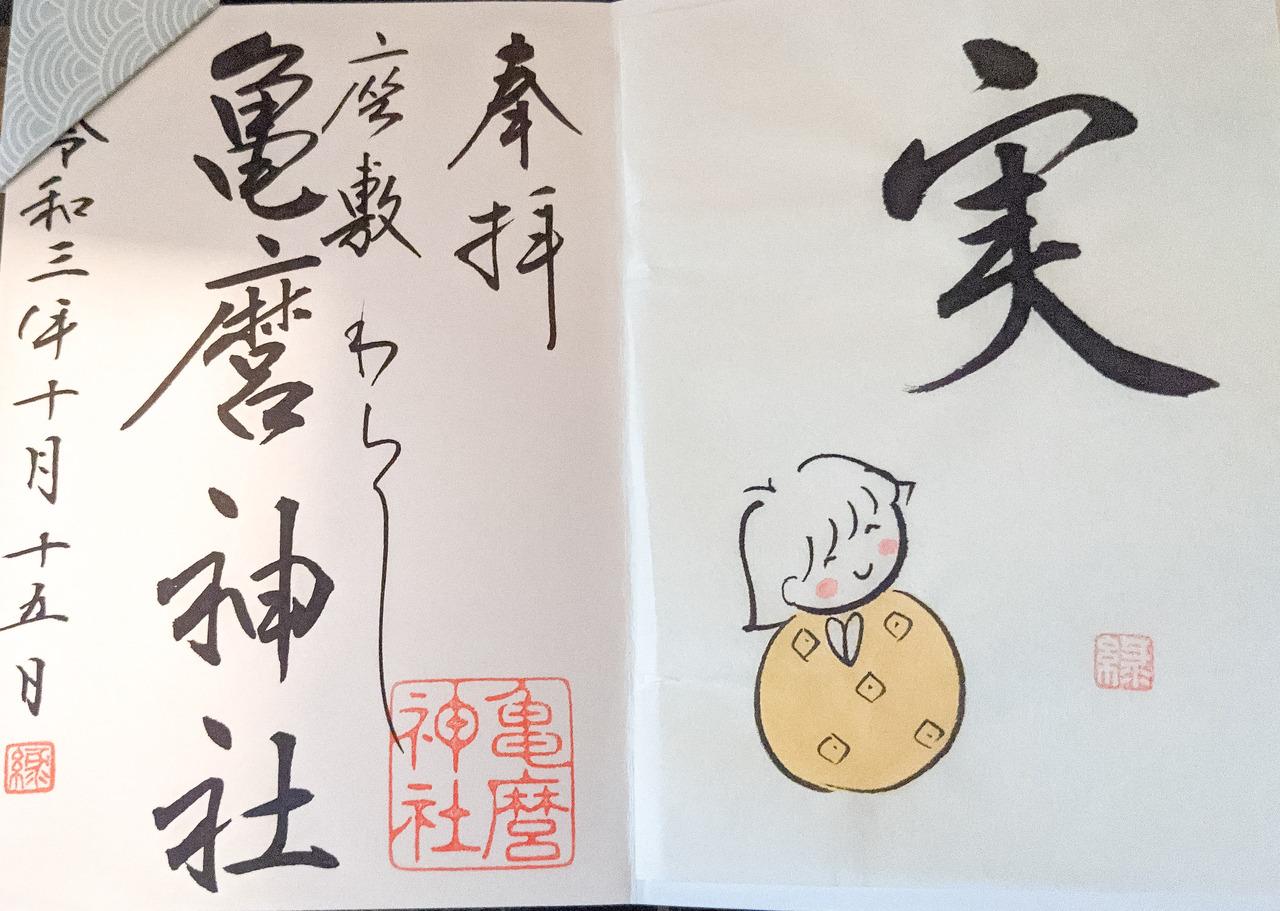 実
緑
奉拝
座敷わらし
亀麿神社
亀麿神社
令和三年十月十五日
緑